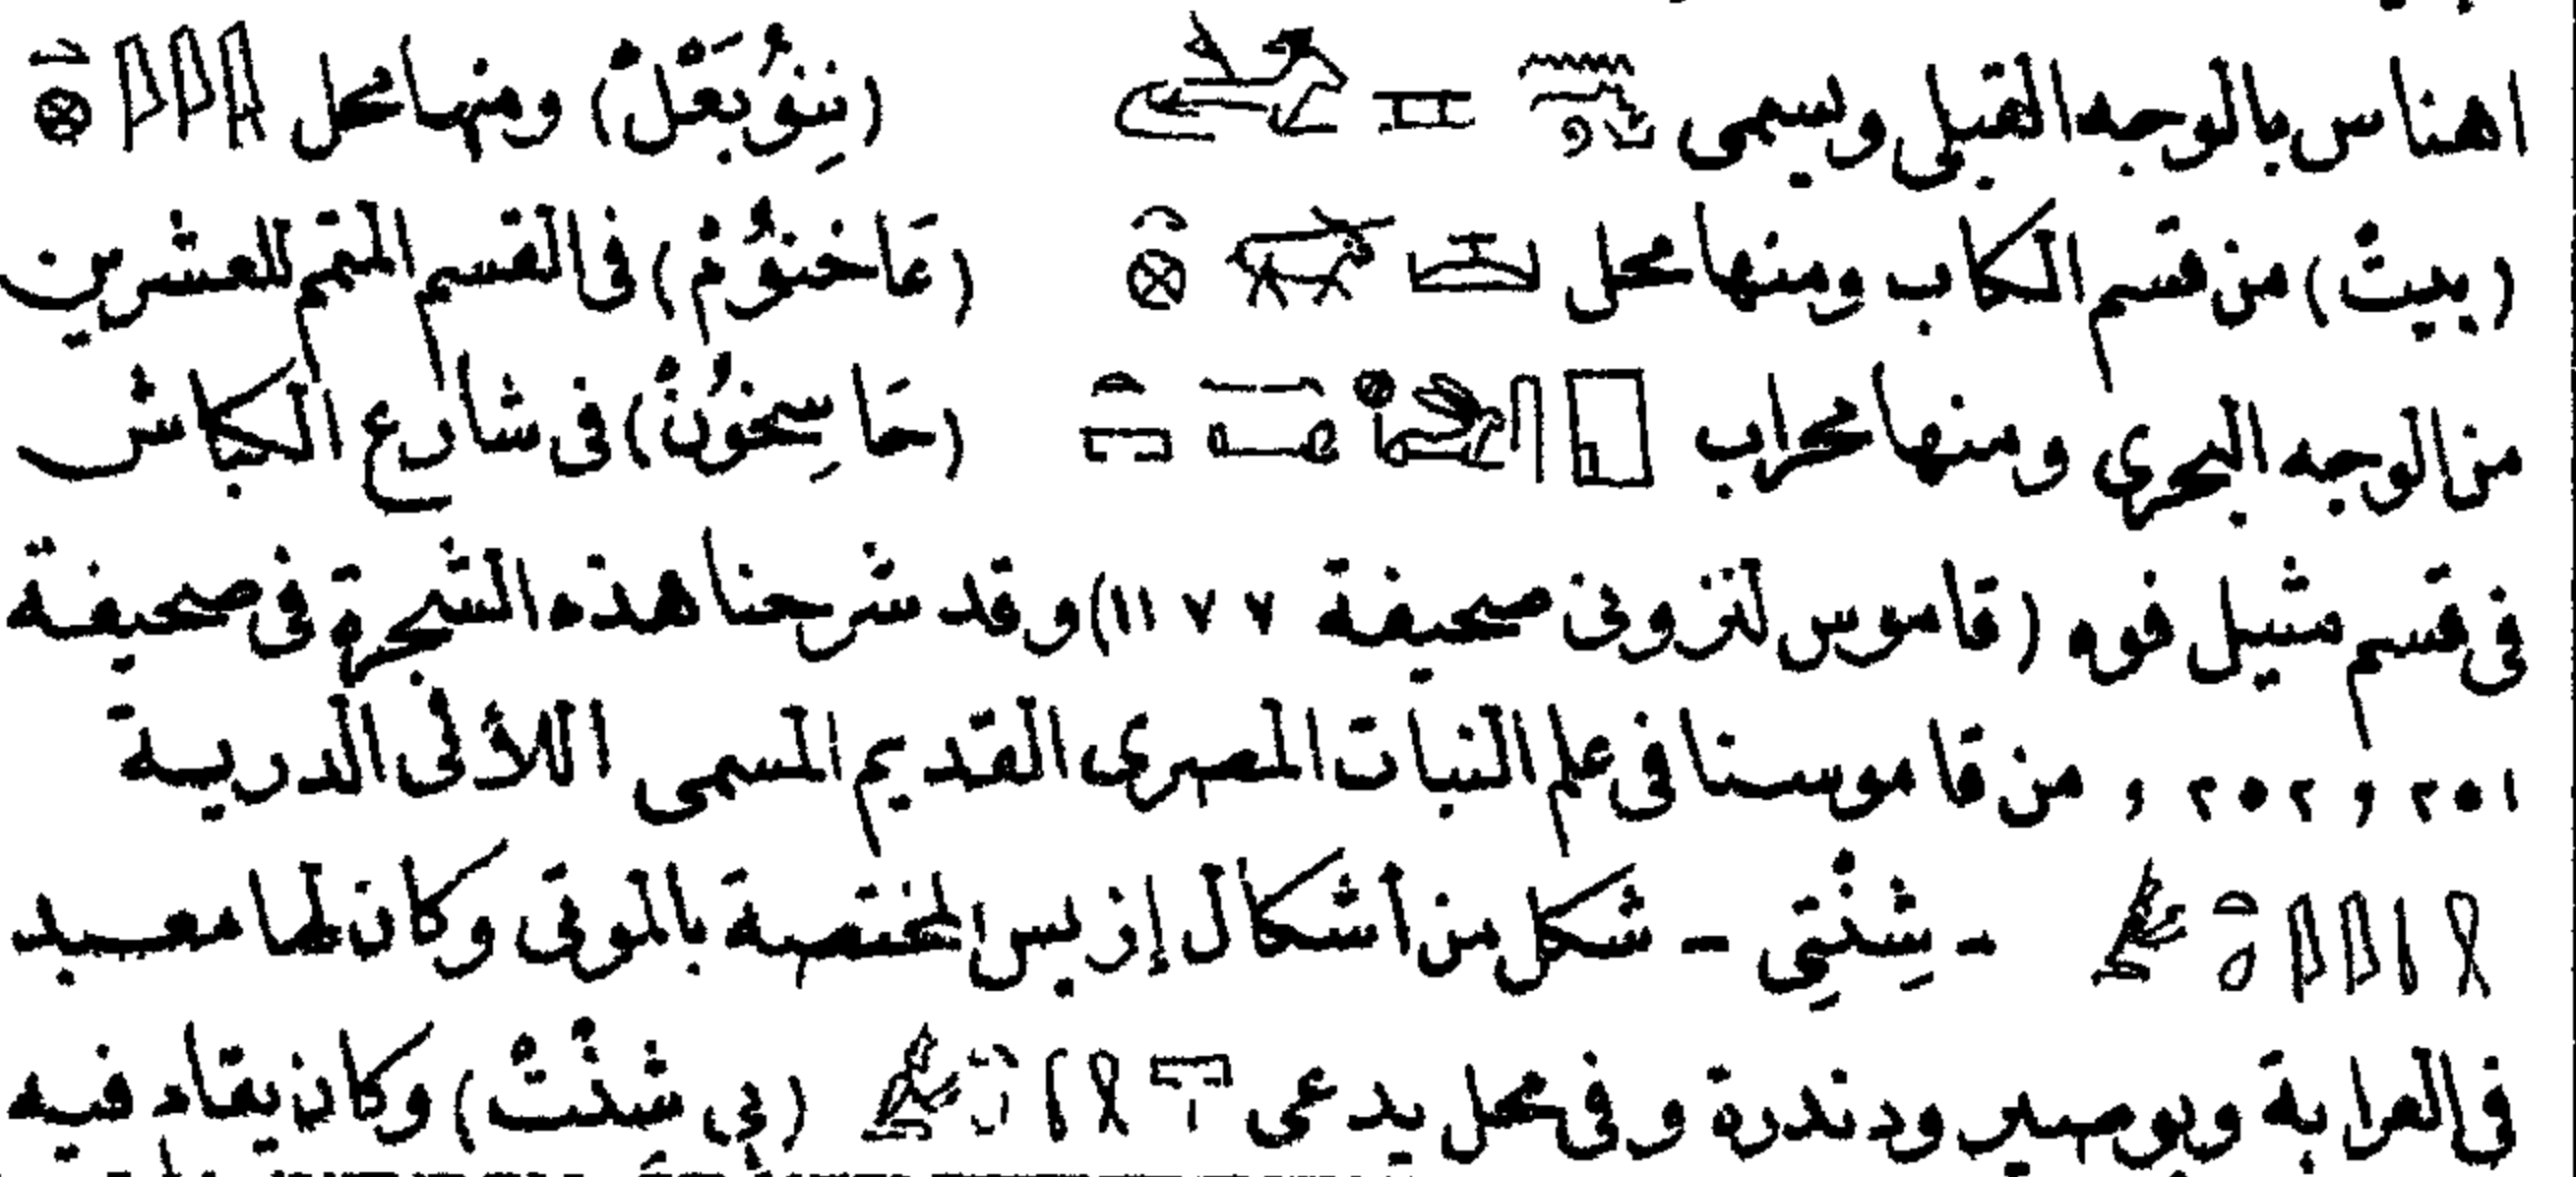 اهناس بالوجه القبلى ويسمى (نِنِوُبَعَلْ) ومنها محل
(بيتْ) من قسم الكاب ومنها محل (عَاخنوُمْ) فى القسم المتمم للعشرين
من الوجه البحرى ومنها محراب (حَاسِخوُنْ) فى شارع الكباش
فى قسم مثيل فوه (قاموس لنزونى صحيفة ١١٧٧) وقد شرحنا هذه الشجرة فى صحيفة
٢٥١ و ٢٥٢ و من قاموسنا فى علم النبات المصرى القديم المسمى اللآلئ الدرية
- شِنْتِى - شكل من أشكال إزيس المختصة بالموتى وكان لها معبد
فى العرابة وبوصير ودندرة وفى محل يدعى (پِى شَنْتْ) وكان يقاد فيه